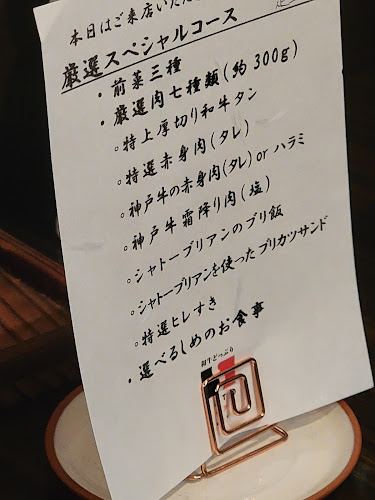 本日はご来店いただ
厳選スペシャルコース
・前菜三種
・厳選肉七種類(約300g)
○特上厚切り和牛タン
○特選赤身肉(タレ)
○神戸牛の赤身肉(タレ)or ハラミ
○神戸牛霜降り肉(塩)
○シャトーブリアンのブリ飯
○シャトーブリアンを使ったブリカツサンド
○特選ヒレすき
・選べるしめのお食事
和牛どっぷり